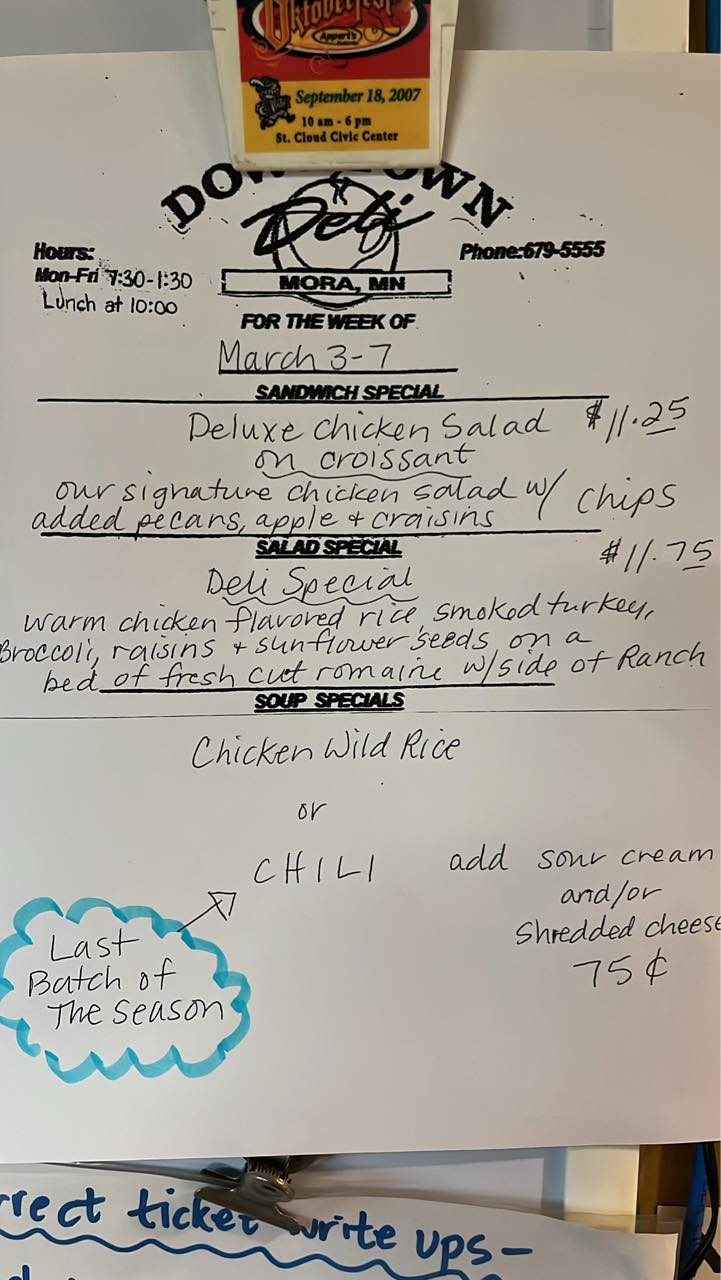 Oktoberfest
Appert's
September 18, 2007
10 am - 6 pm
St. Cloud Civic Center
DOWNTOWN
Deli
MORA, MN
Hours:
Mon-Fri 7:30-1:30
Lunch at 10:00
Phone:679-5555
FOR THE WEEK OF
March 3-7
SANDWICH SPECIAL
Deluxe Chicken Salad $11.25
on croissant
our signature chicken salad w/ chips
added pecans, apple + craisins
SALAD SPECIAL
$11.75
Deli Special
warm chicken flavored rice, smoked turkey,
Broccoli, raisins + sunflower seeds on a
bed of fresh cut romaine w/side of Ranch
SOUP SPECIALS
Chicken Wild Rice
or
CHILI
add sour cream
and/or
Shredded cheese
75¢
Last
Batch of
The Season
rrect ticket write ups-